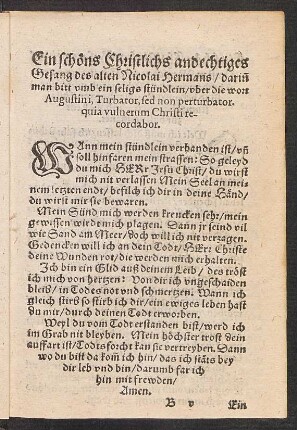 Ein schöns Christlichs andechtiges
Gesang des alten Nicolai Hermans / dariñ
man bitt vmb ein seligs stündlein / vber die wort
Augustini, Turbator, sed non perturbator.
quia vulnerum Christi re-
cordabor.
WAnn mein stündlein verhanden ist / vñ
soll hinfaren mein strassen: So geleyd
du mich HErr Jesu Christ / du wirst
mich nit verlassen Mein Seel an mei-
nem letzten endt / befilch ich dir in deine Händ /
du wirst mir sie bewaren.
Mein Sünd mich werden krencken sehr / mein
gewissen wirdt mich plagen. Dann jr seind vil
wie Sand am Meer / doch will ich nit verzagen.
Gedencken will ich an dein Todt / HErr Christe
deine Wunden rot / die werden mich erhalten.
Ich bin ein Glid auß deinem Leib / des tröst
ich mich von hertzen: Von dir ich vngescheiden
bleib / in Todes not vnd schmertzen. Wann ich
gleich stirb so stirb ich dir / ein ewiges leben hast
du mir / durch deinen Todt erworben.
Weyl du vom Todt erstanden bist / werd ich
im Grab nit bleyben. Mein höchster trost dein
auffart ist / Todtsforcht kan sie vertreyben. Dann
wo du bist da kom̃ ich hin / das ich stäts bey
dir leb vnd bin / darumb far ich
hin mit frewden /
Amen.
B v Ein